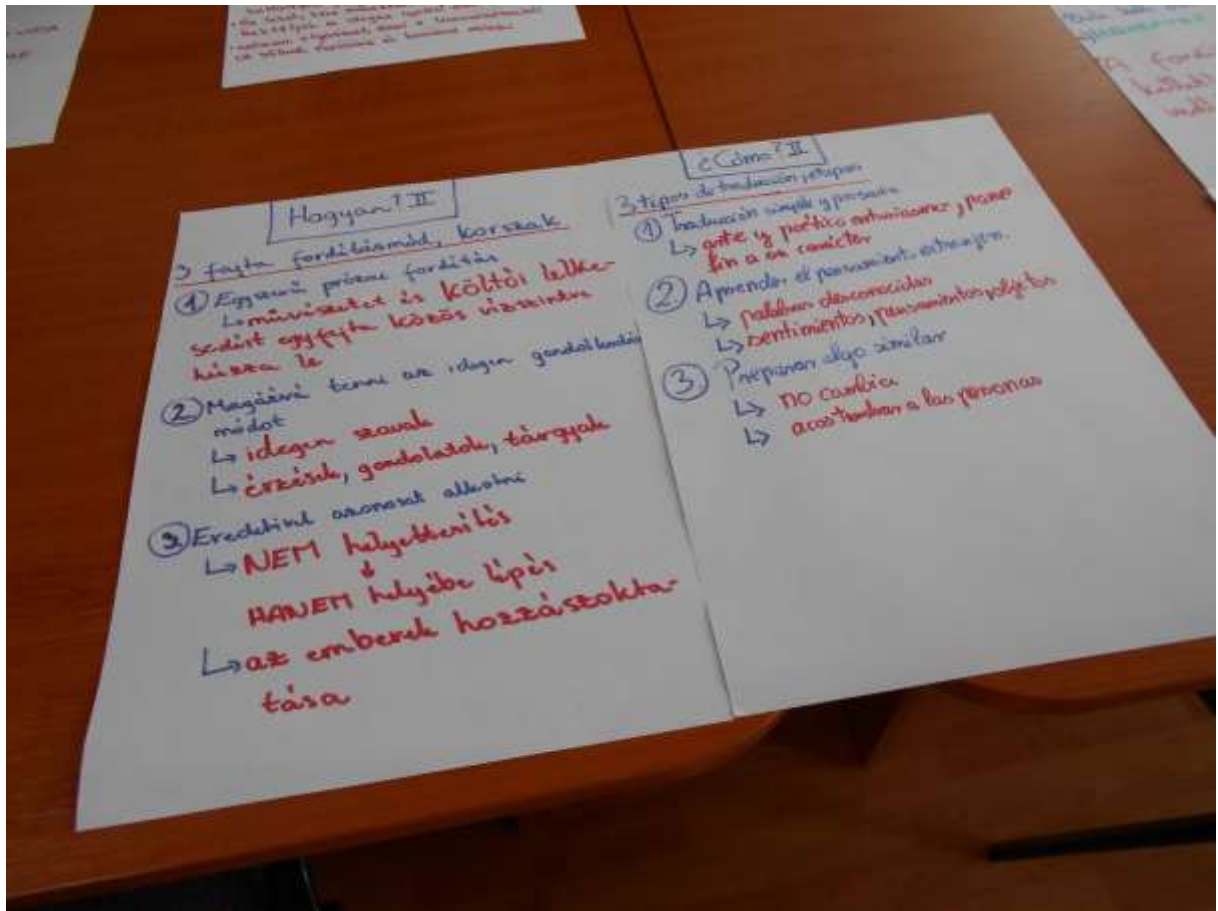 Hogyan? II
3 fajta fordításmód, korszak
① Egyszerű prózai fordítás
↳ művészetet és költői lelke-
sedést egyfajta közös vízszintre
húzza le
② Magáévá tenni az idegen gondolkodás
módot
↳ idegen szavak
↳ érzések, gondolatok, tárgyak
③ Eredetivel azonosat alkotni
↳ NEM helyettesítés
↓
HANEM helyébe lépés
↳ az emberek hozzászokta-
tása
¿Cómo? II
3 tipos de traducción, etapas
① Traducción simple y prosaica
↳ arte y poético entusiasmo, pone
fin a su carácter
② Aprender el pensamiento extranjero.
↳ palabras desconocidas
↳ sentimientos, pensamientos, objetos
③ Preparar algo similar
↳ no cambia
↳ acostumbrar a las personas